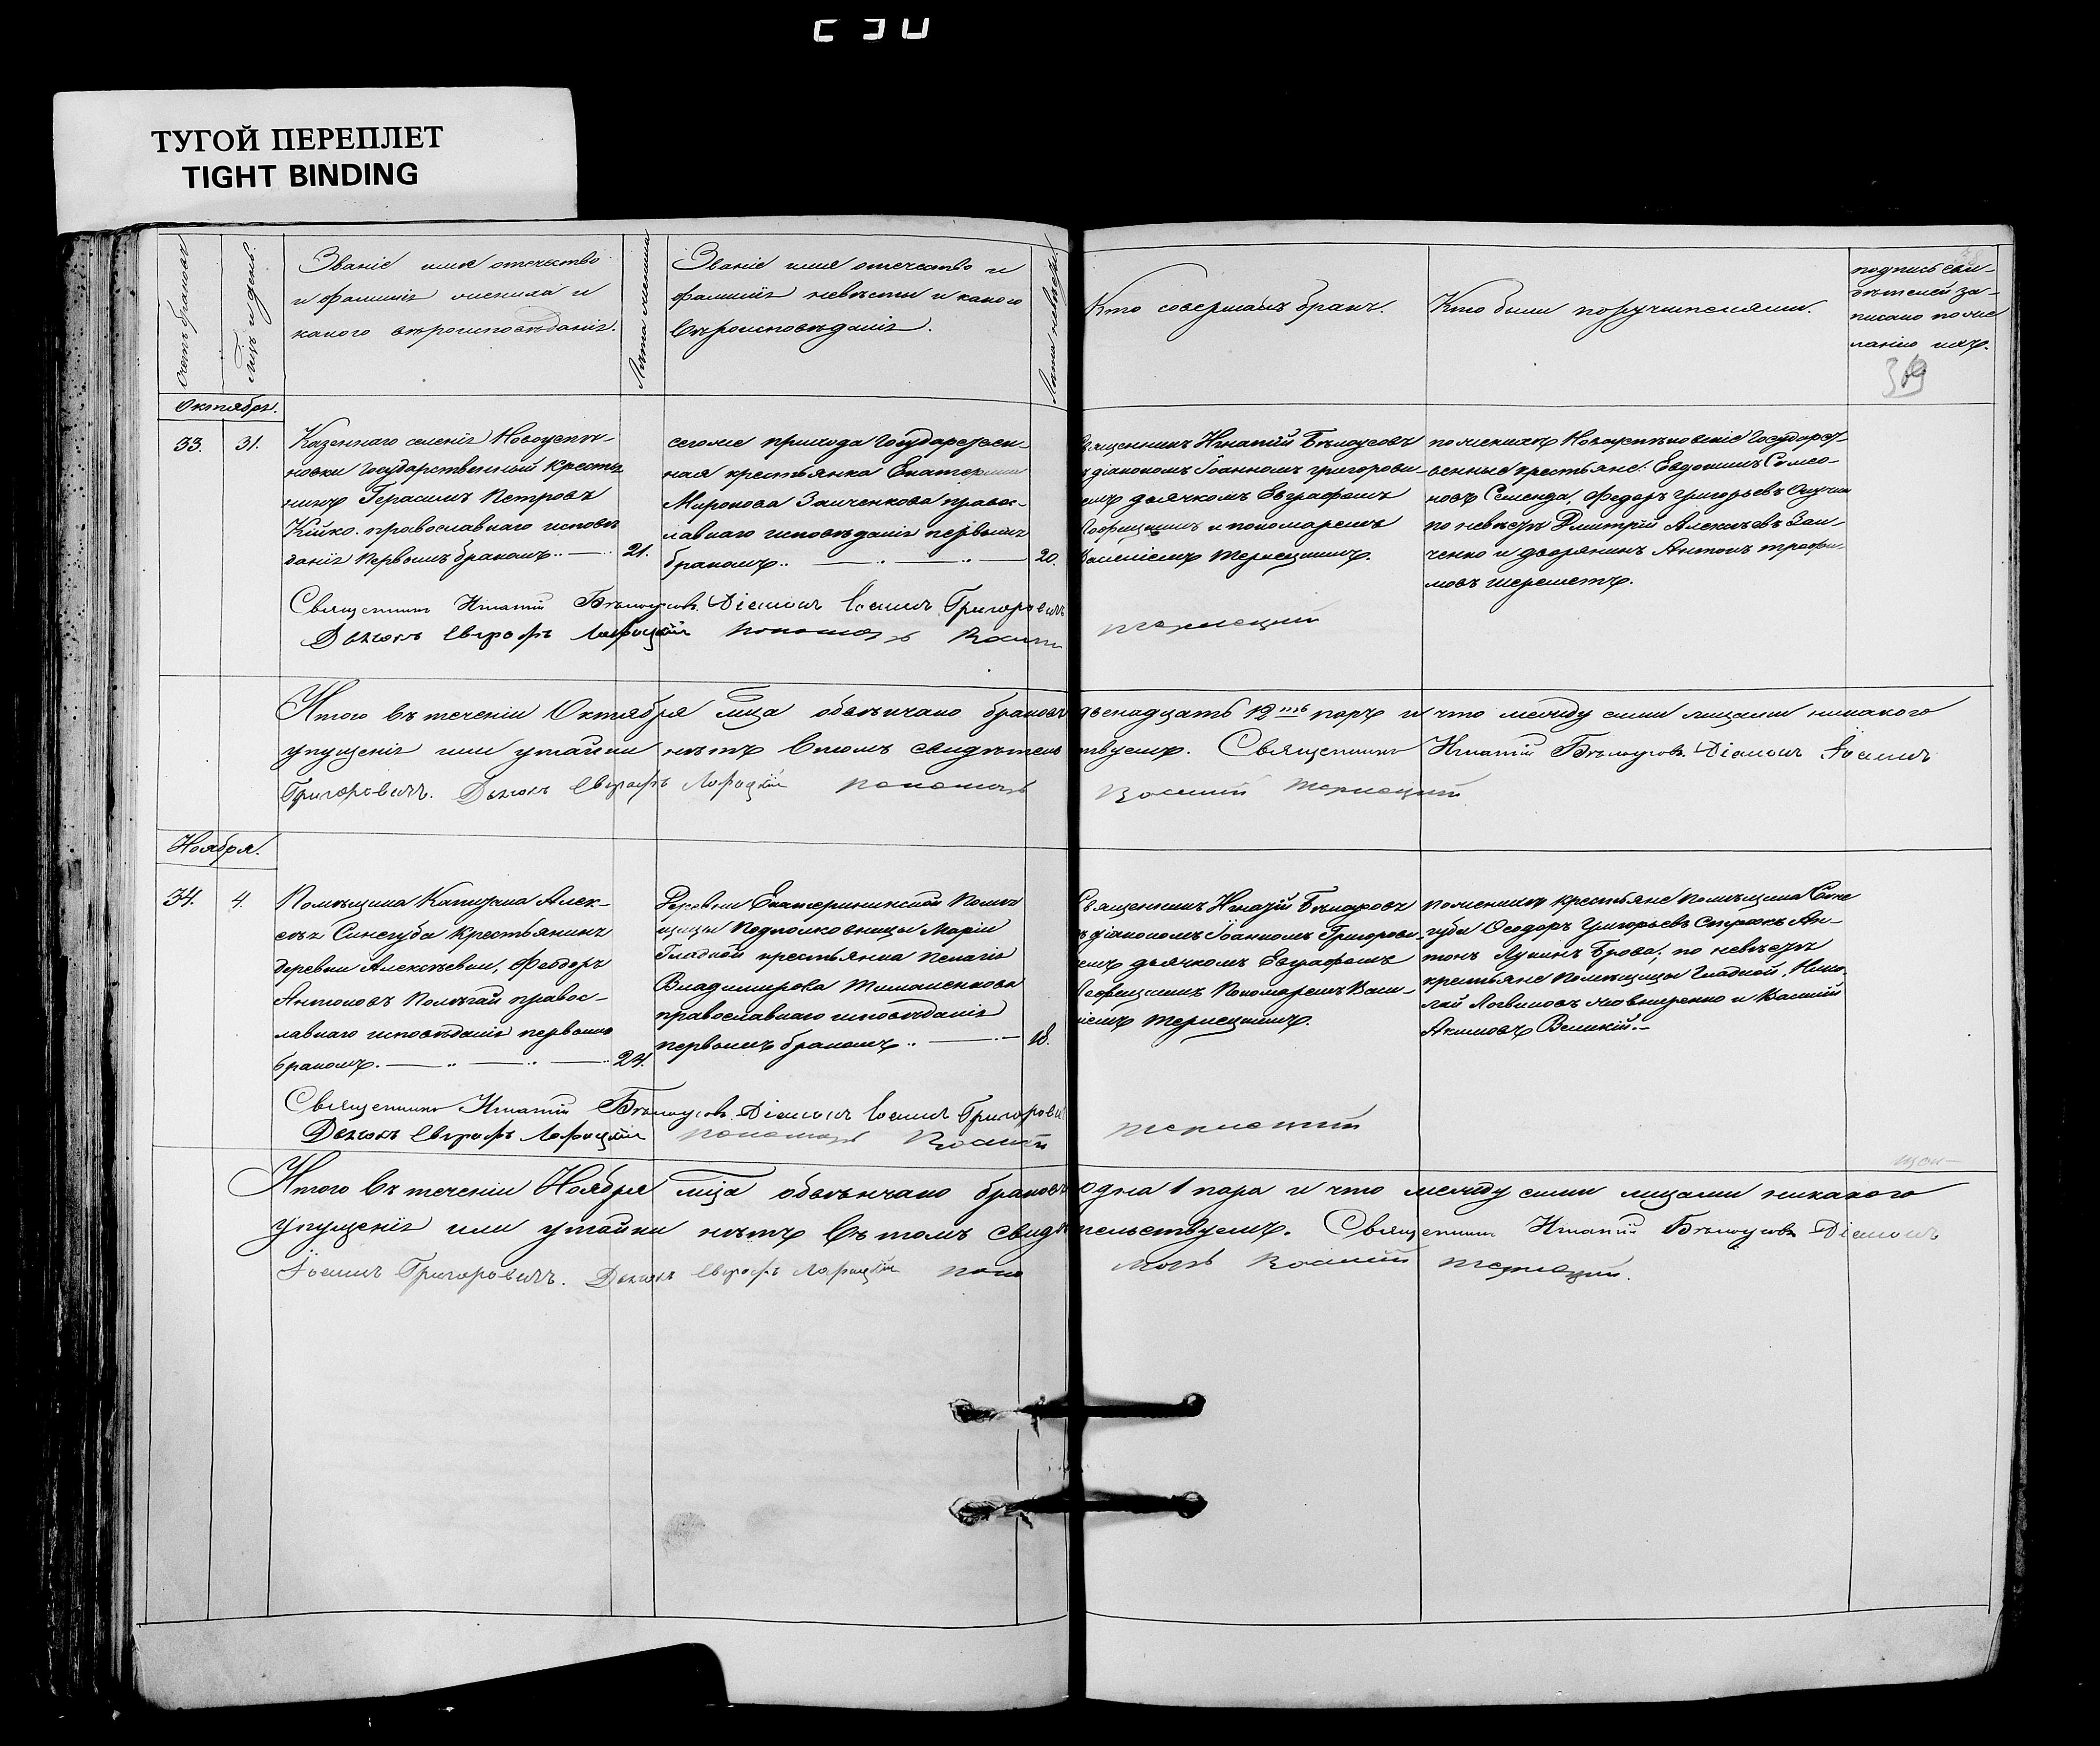 ТУГОЙ ПЕРЕПЛЕТ
TIGHT BINDING
Счетъ браковъ
Мцъ и день.
Званіе имя отечество
и фамилія жениха и
какого вѣроисповѣданія.
Лѣта жениха
Званіе имя отечество и
фамилія невѣсты и какого
вѣроисповѣданія.
Лѣта невѣсты
Кто совершалъ бракъ.
Кто были поручителями.
подпись сви-
дѣтелей за-
писано по же
ланію ихъ.
319
Октября.
33.
31.
Казеннаго селенія Новоуспе-
новки Государственный крестья
нинъ Герасимъ Петровъ
Кійко. православнаго исповѣ
данія первымъ бракомъ..
21.
сегоже прихода Государствен-
ная крестьянка Екатерина
Миронова Заиченкова правос-
лавнаго исповѣданія первымъ
бракомъ..
20.
Священникъ Игнатій Бѣлоусовъ
діакономъ Іоанномъ Григорови-
емъ дьячкомъ Евграфомъ
и пономаремъ
Василіемъ Тернецкимъ.
по женихѣ Государст-
венные крестьяне: Евдокимъ Симео-
новъ Семенда, Федоръ Григорьевъ
по невѣстѣ Дмитрій Алексѣевъ Заи-
ченко и дворянинъ Антонъ Трофи-
мовъ Шереметъ.
Священникъ Игнатій Бѣлоусовъ. Діаконъ Іоаннъ Григоровичъ
Дьячокъ Евграфъ пономарь Василій
Тернецкій
Итого въ теченіи Октября мца обвѣнчано браковъ двенадцать 12ть паръ и что между сими лицами никакого
упущенія или утайки нѣтъ въ томъ свидѣтельствуемъ. Священникъ Игнатій Бѣлоусовъ. Діаконъ Іоаннъ
Григоровичъ. Дьячокъ Евграфъ пономарь Василій Тернецкій
Ноября.
34.
4.
Помѣщика Капитана Алек-
сѣя Синегуба крестьянинъ
деревни Алексѣевки, Феодоръ
Антоновъ Помагай правос-
лавнаго исповѣданія первымъ
бракомъ.
24.
Деревни Екатерининской Помѣ
щицы Подполковницы Маріи
Гладкой крестьянка Пелагія
Владимирова Тимошенкова
православнаго исповѣданія
первымъ бракомъ..
18.
Священникъ Игнатій Бѣлоусовъ
діакономъ Іоанномъ Григорови-
емъ дьячкомъ Евграфомъ
Пономаремъ Васи-
ліемъ Тернецкимъ.
по женихѣ крестьяне Помѣщика Сине
губа Феодоръ Григорьевъ Ан-
тонъ Лукинъ Брова; по невѣстѣ
крестьяне Помѣщицы Гладкой: Нико-
лай Логвиновъ и Василій
Акимовъ Великій.-
Священникъ Игнатій Бѣлоусовъ. Діаконъ Іоаннъ Григорович
Дьячокъ Евграфъ пономарь Василій
Тернецкій
Итого въ теченіи Ноября мца обвѣнчано браковъ одна 1 пара и что между сими лицами никакого
упущенія или утайки нѣтъ въ томъ свидѣтельствуемъ. Священникъ Игнатій Бѣлоусовъ Діаконъ
Іоаннъ Григоровичъ. Дьячокъ Евграфъ пономарь Василій Тернецкій.